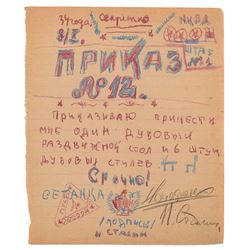 34 года. Секретно
8/X.
ШТАБ
№1
ПРИКАЗ
№12.
Приказываю принести
мне один дубовый
раздвижной стол и 6 штук
дубовых стульев
Срочно!
Сетанка
/подпись/
и Сталин